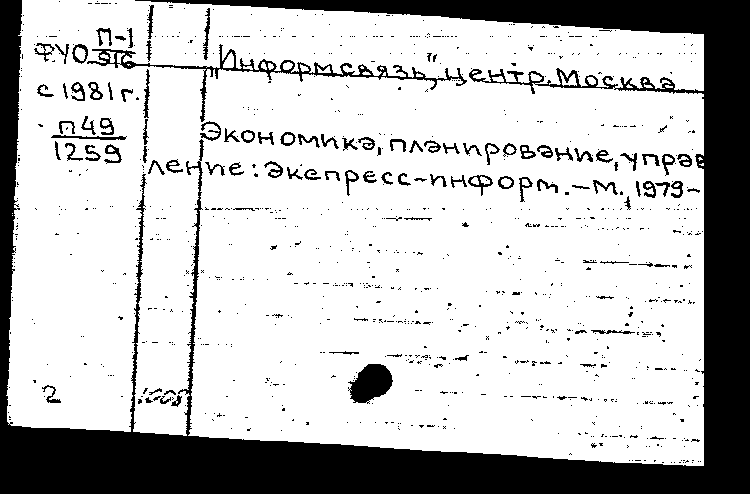 ФУО П-1/916
"Информсвязь", центр. Москва
с 1981 г.
П49/1259
Экономика, планирование, управ
ление: Экспресс-информ. - М., 1979-
2
1008